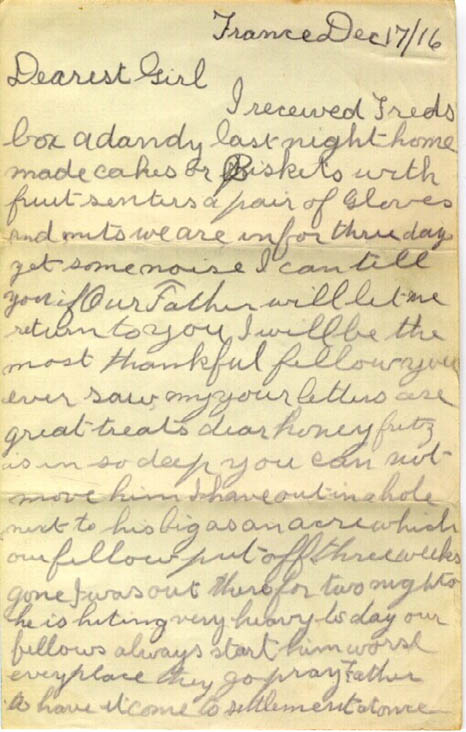 France Dec 17/16
Dearest Girl
I received Freds
box a dandy last night home
made cakes or Biskets with
fruit senters a pair of Gloves
and mits we are in for three day
yet some noise I can tell
you if Our Father will let me
return to you I will be the
most thankful fellow you
ever saw, my your letters are
great treats dear honey fritz
is in so deep you can not
move him I have out in a hole
next to his big as an acre which
our fellow put off three weeks
gone I was out there for two nights
he is hiting very heavy to day our
fellows always start him worse
everyplace they go pray Father
to have it come to settlement at once